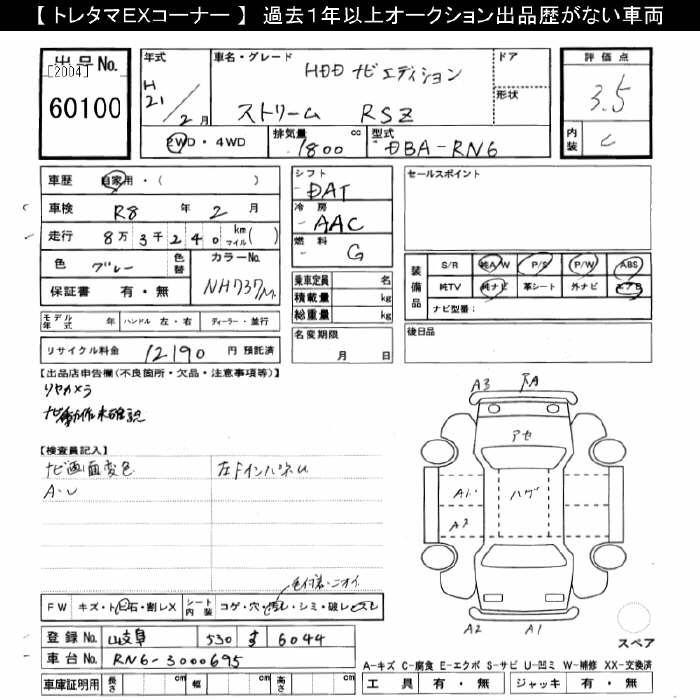 【トレタマEXコーナー】 過去１年以上オークション出品歴がない車両
出品No.
[2004]
60100
年式
H21/2月
車名・グレード
HDD ナビエディション
ストリーム RSZ
ドア
形状
評価点
3.5
内装
C
2WD・4WD
排気量 cc
1800
型式
DBA-RN6
車歴 自家用・( )
車検 R8 年 2 月
走行 8万3千240 km マイル( )
色 グレー 色替
カラーNo.
NH737M
保証書 有・無
シフト
DAT
冷房
AAC
燃料
G
乗車定員 名
積載量 kg
総重量 kg
セールスポイント
装備品
S/R 純A/W P/S P/W ABS
純TV 純ナビ 革シート 外ナビ エアB
ナビ型量：
モデル年式 年 ハンドル 左・右 ディーラー・並行
名変期限
月 日
後日品
リサイクル料金 12190 円 預託済
【出品店申告欄(不良箇所・欠品・注意事項等)】
リヤカメラ
ナビ動作未確認
【検査員記入】
ナビ画面変色
A・U
左FインパネU
色付着・ニオイ
FW キズ・トビ石・割レX
シート内装 コゲ・穴・汚レ・シミ・破レ・スレ
A3
下A
アセ
A1
ハゲ
A2
A2
A1
スペア
登録No. 岐阜 530 す 6044
車台No. RN6-3000695
A-キズ C-腐食 E-エクボ S-サビ U-凹ミ W-補修 XX-交換済
車庫証明用 長さ cm 幅 cm 高さ cm
工具 有・無 ジャッキ 有・無